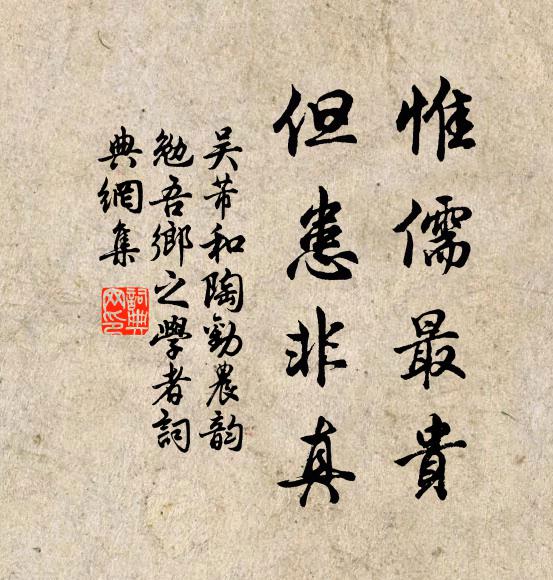 惟儒最貴
但患非真
吴芾和陶勸農韵
勉吾鄉之學者詞
典網集
詞典
网印